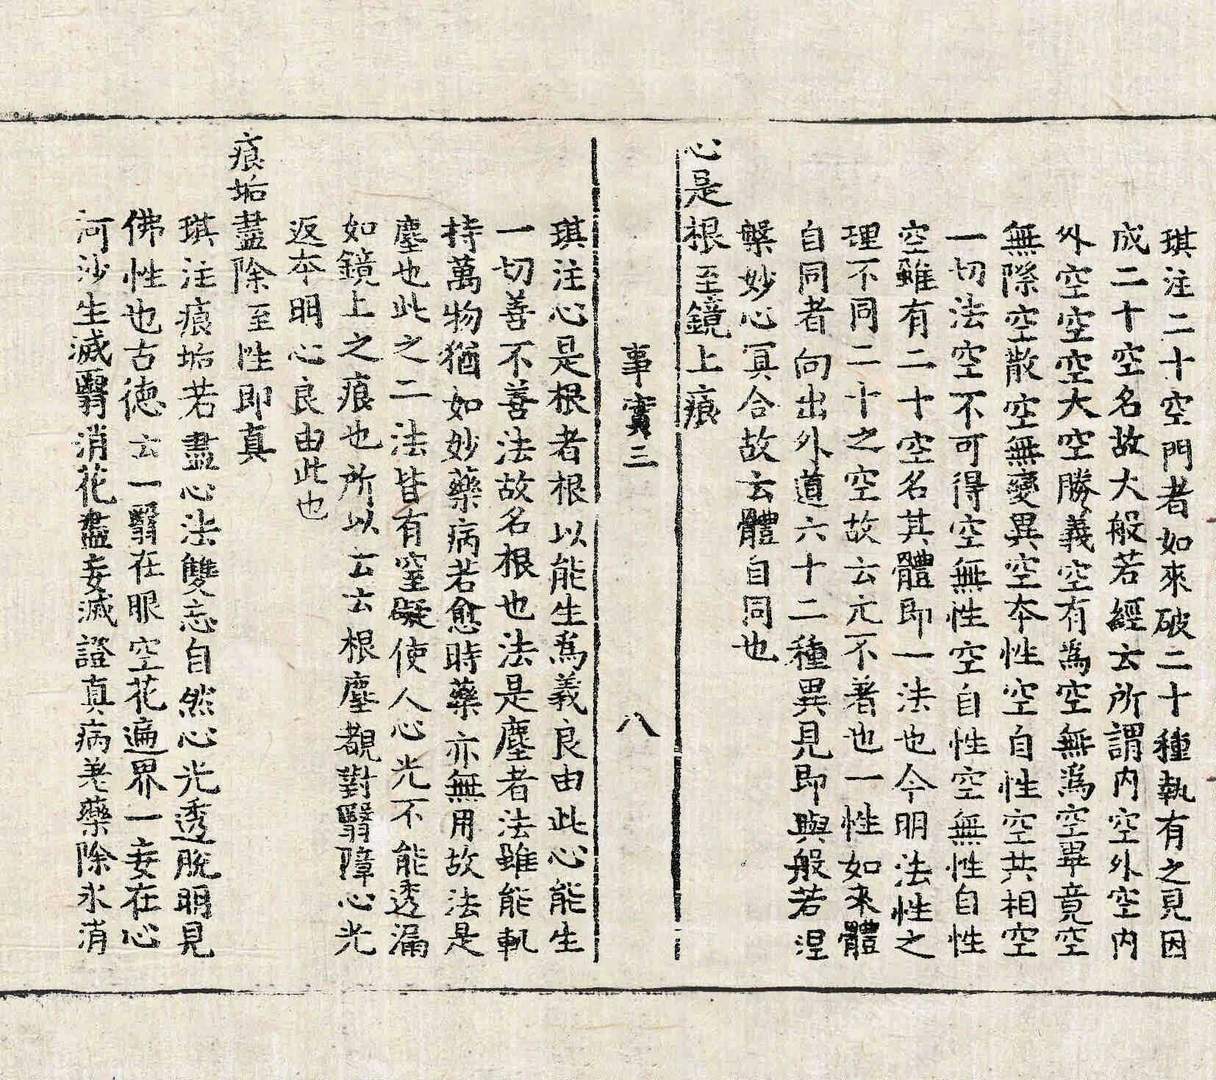 琪注二十空門者如來破二十種執有之見因
成二十空名故大般若經云所謂內空外空內
外空空空大空勝義空有為空無為空畢竟空
無際空散空無變異空本性空自性空共相空
一切法空不可得空無性空自性空無性自性
空雖有二十空名其體即一法也今明法性之
理不同二十之空故云元不著也一性如來體
自同者向出外道六十二種異見即與般若涅
槃妙心冥合故云體自同也
心是根至鏡上痕
事實三
八
琪注心是根者根以能生為義良由此心能生
一切善不善法故名根也法是塵者法雖能軌
持萬物猶如妙藥病若愈時藥亦無用故法是
塵也此之二法皆有窒礙使人心光不能透漏
如鏡上之痕也所以云云根塵覩對翳障心光
返本明心良由此也
痕垢盡除至性即真
琪注痕垢若盡心法雙忘自然心光透脫明見
佛性也古德云一翳在眼空花遍界一妄在心
河沙生滅翳消花盡妄滅證真病差藥除氷消